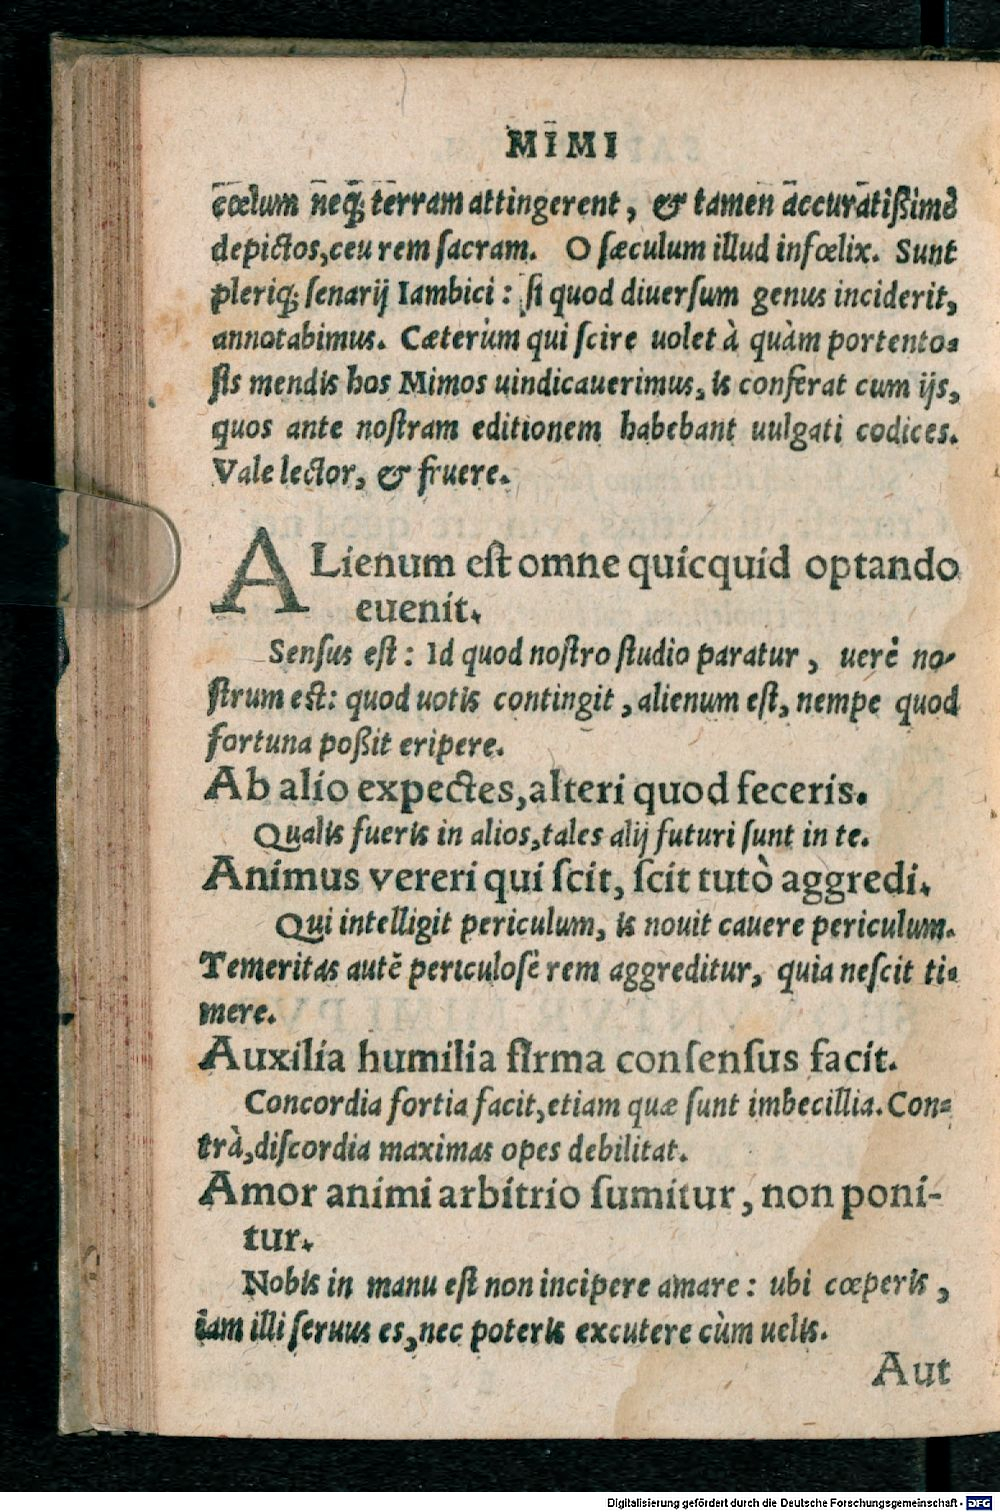 MIMI
cœlum neq; terram attingerent, & tamen accuratißimè
depictos, ceu rem ſacram. O ſæculum illud infœlix. Sunt
pleriq; ſenarij Iambici: ſi quod diuerſum genus inciderit,
annotabimus. Cæterùm qui ſcire uolet à quàm portento⸗
ſis mendis hos Mimos uindicauerimus, is conferat cum ijs,
quos ante noſtram editionem habebant uulgati codices.
Vale lector, & fruere.
ALienum eſt omne quicquid optando
euenit.
Senſus eſt: Id quod noſtro ſtudio paratur, uerè no⸗
ſtrum eſt: quod uotis contingit, alienum eſt, nempe quod
fortuna poßit eripere.
Ab alio expectes, alteri quod feceris.
Qualis fueris in alios, tales alij futuri ſunt in te.
Animus vereri qui ſcit, ſcit tutò aggredi.
Qui intelligit periculum, is nouit cauere periculum.
Temeritas autē periculoſè rem aggreditur, quia neſcit ti⸗
mere.
Auxilia humilia firma conſenſus facit.
Concordia fortia facit, etiam quæ ſunt imbecillia. Con⸗
trà, diſcordia maximas opes debilitat.
Amor animi arbitrio ſumitur, non poni-
tur.
Nobis in manu eſt non incipere amare: ubi cœperis,
iam illi ſeruus es, nec poteris excutere cùm uelis.
Aut
Digitalisierung gefördert durch die Deutsche Forschungsgemeinschaft - DFG